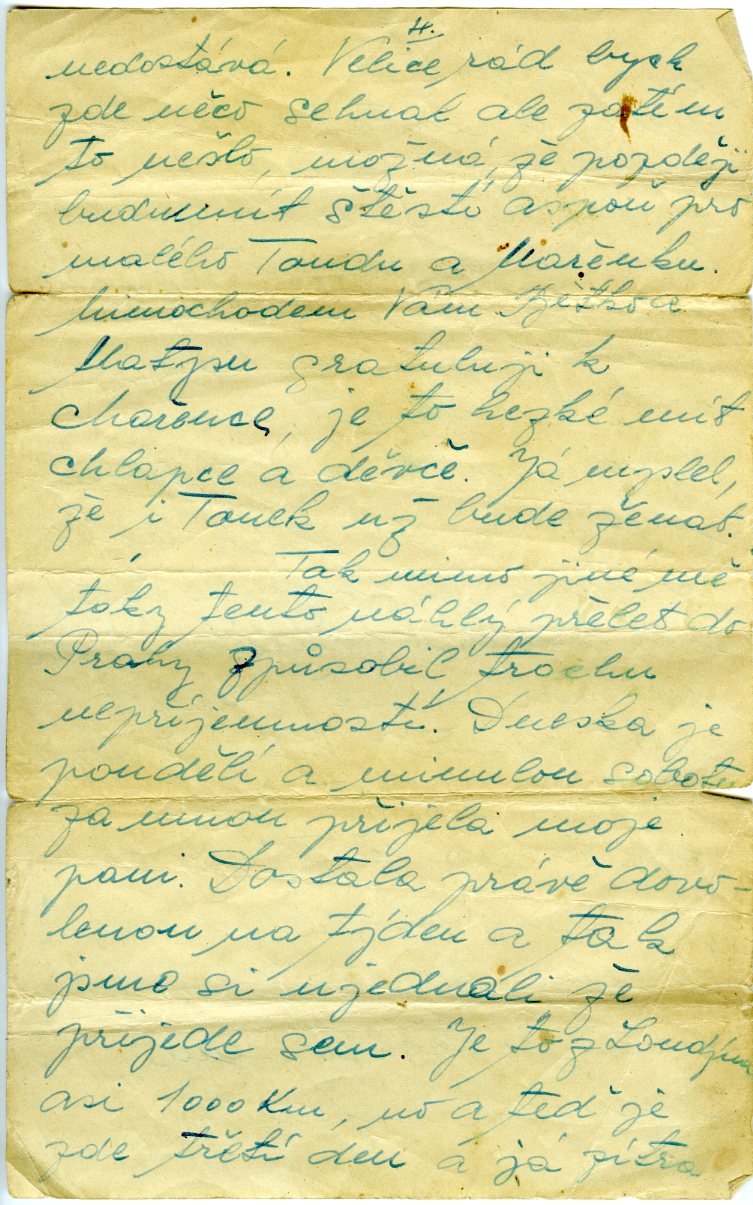 4.
nedostává. Velice rád bych
zde něco sehnal ale zatím
to nešlo, možná, že později
budu mít štěstí, aspoň pro
malého Toudu a Mařenku.
Mimochodem Vám
Matysu gratuluji k
charence, je to hezké mít
chlapce a děvče. Já myslel,
že i Tonek už bude ženat.
Tak mimo jiné mě
taky tento náhlý přelet do
Prahy způsobil trochu
nepříjemností. Dneska je
pondělí a minulou sobotu
za mnou přijela moje
paní. Dostala právě dovo-
lenou na týden a tak
jsme si ujednali že
přijede sem. Je to z Londýna
asi 1000 Km, no a teď je
zde třetí den a já zítra